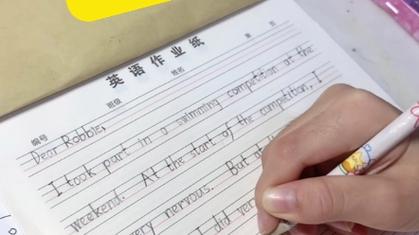 英语作业纸
编号
班级
姓名
Dear Robbie,
I took part in a swimming competition at the
weekend. At the start of the competition, I
very nervous. But at
I did ver